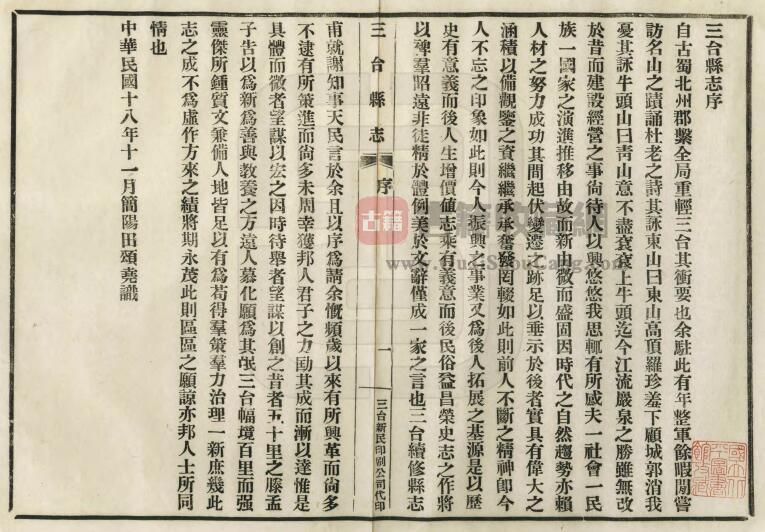 三台縣志序
自古蜀北州郡繫全局重輕三台其衝要也余駐此有年整軍餘暇間嘗
訪名山之蹟誦杜老之詩其詠東山曰東山高頂羅珍羞下顧城郭消我
憂其詠牛頭山曰青山意不盡袞袞上牛頭迄今江流巖泉之勝雖無改
於昔而建設經營之事尚待人以興悠悠我思輒有所感夫一社會一民
族一國家之演進推移由故而新由微而盛固因時代之自然趨勢亦賴
人材之努力成功其間起伏變遷之跡足以垂示於後者實具有偉大之
涵積以備觀鑒之資繼繼承承奮發罔輟如此則前人不斷之精神即今
人不忘之印象如此則今人振興之事業又為後人拓展之基源是以歷
史有意義而後人生增價值志乘有義意而後民俗益昌榮史志之作將
以裨羣昭遠非徒精於體例美於文辭僅成一家之言也三台續修縣志
三台縣志
序
一
三台新民印刷公司代印
甫就謝知事天民言於余且以序為請余慨頻歲以來有所興革而尚多
不逮有所策進而尚多未周幸獲邦人君子之力勖其成而漸以達惟是
具體而微者望謀以宏之因時待舉者望謀以創之昔者五十里之滕孟
子告以為新為善與教養之方遠人慕化願為其氓三台幅境百里而强
靈傑所鍾質文兼備人地皆足以有為苟得羣策羣力治理一新庶幾此
志之成不為虛作方來之績將期永茂此則區區之願諒亦邦人士所同
情也
中華民國十八年十一月簡陽田頌堯識
古籍
www.GuJiShuCang.com